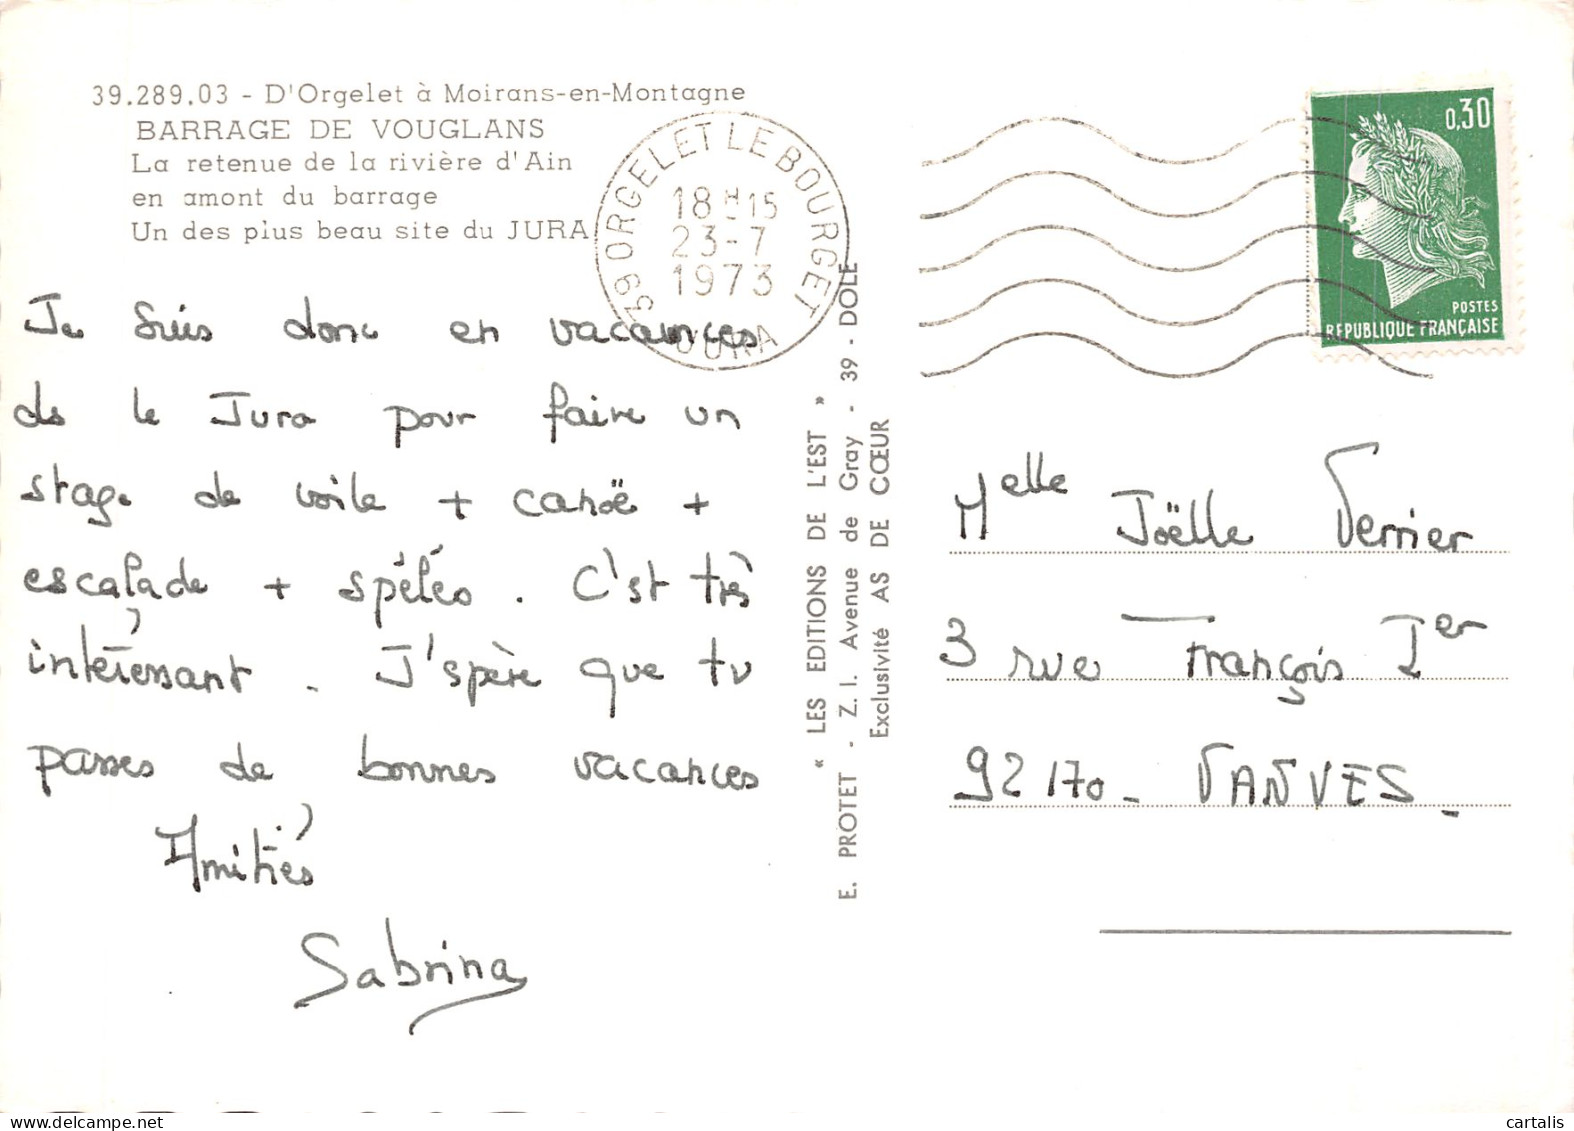 39.289.03 - D'Orgelet à Moirans-en-Montagne
BARRAGE DE VOUGLANS
La retenue de la rivière d'Ain
en amont du barrage
Un des plus beau site du JURA
39 ORGELET LE BOURGET
18H15
23-7
1973
JURA
0,30
POSTES
REPUBLIQUE FRANÇAISE
Je suis donc en vacances
ds le Jura pour faire un
stage de voile + canoë +
escalade + spéléo. C'est très
intéressant. J'spère que tu
passes de bonnes vacances
Amitiés
Sabrina
« LES EDITIONS DE L'EST »
E. PROTET - Z. I. Avenue de Gray - 39 - DOLE
Exclusivité AS DE CŒUR
Melle Joëlle Verrier
3 rue François Ier
92170 - VANVES
delcampe.net
cartalis